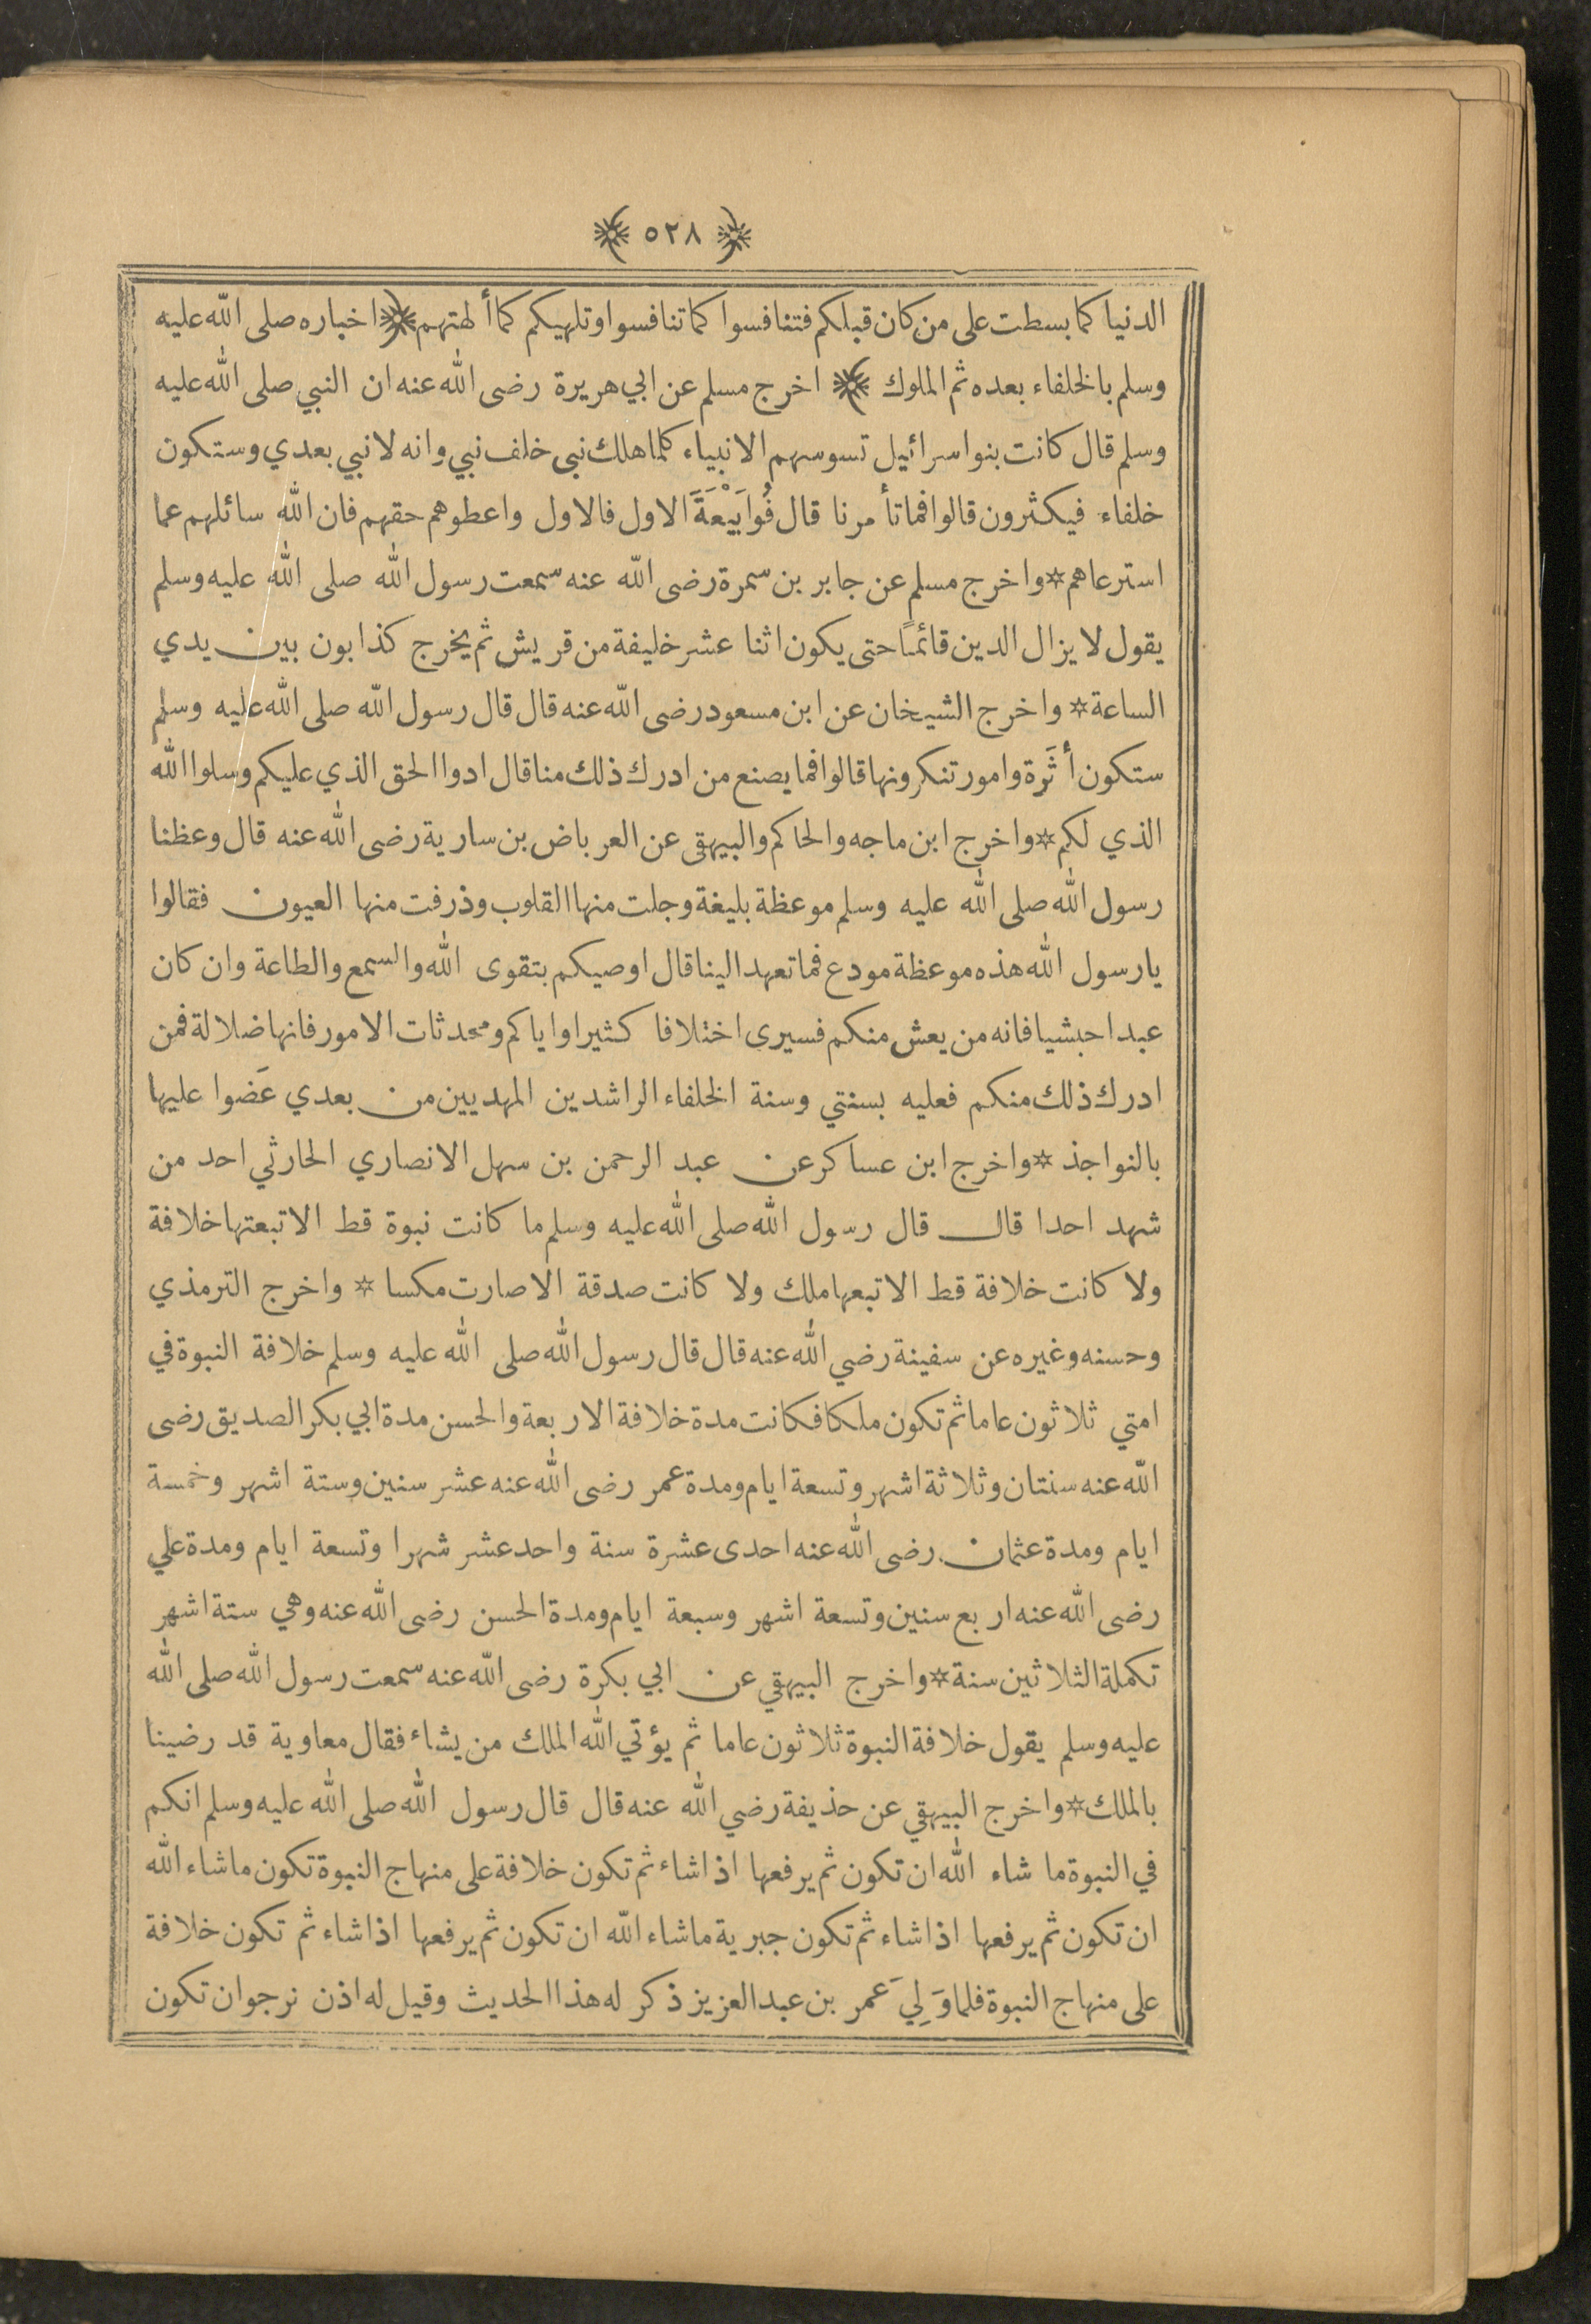 ﴿ ٥٢٨ ﴾
الدنيا كما بسطت على من كان قبلكم فتنافسوا كما تنافسوا وتلهيكم كما ألهتهم ﴿ اخباره صلى الله عليه
وسلم بالخلفاء بعده ثم الملوك ﴾ اخرج مسلم عن ابي هريرة رضى الله عنه ان النبي صلى الله عليه
وسلم قال كانت بنو اسرائيل تسوسهم الانبياء كلما هلك نبى خلف نبي وانه لا نبي بعدي وستكون
خلفاء فيكثرون قالوا فما تأمرنا قال فُوا بَيْعَةَ الاول فالاول واعطوهم حقهم فان الله سائلهم عما
استرعاهم * واخرج مسلم عن جابر بن سمرة رضى الله عنه سمعت رسول الله صلى الله عليه وسلم
يقول لا يزال الدين قائمًا حتى يكون اثنا عشر خليفة من قريش ثم يخرج كذابون بين يدي
الساعة * واخرج الشيخان عن ابن مسعود رضى الله عنه قال قال رسول الله صلى الله عليه وسلم
ستكون أثَرة وامور تنكرونها قالوا فما يصنع من ادرك ذلك منا قال ادوا الحق الذي عليكم وسلوا الله
الذي لكم * واخرج ابن ماجه والحاكم والبيهقى عن العرباض بن سارية رضى الله عنه قال وعظنا
رسول الله صلى الله عليه وسلم موعظة بليغة وجلت منها القلوب وذرفت منها العيون فقالوا
يارسول الله هذه موعظة مودع فما تعهد الينا قال اوصيكم بتقوى الله والسمع والطاعة وان كان
عبدا حبشيا فانه من يعش منكم فسيرى اختلافا كثيرا واياكم ومحدثات الامور فانها ضلالة فمن
ادرك ذلك منكم فعليه بسنتي وسنة الخلفاء الراشدين المهديين من بعدي عَضوا عليها
بالنواجذ * واخرج ابن عساكر عن عبد الرحمن بن سهل الانصاري الحارثي احد من
شهد احدا قال قال رسول الله صلى الله عليه وسلم ما كانت نبوة قط الا تبعتها خلافة
ولا كانت خلافة قط الا تبعها ملك ولا كانت صدقة الا صارت مكسا * واخرج الترمذي
وحسنه وغيره عن سفينة رضي الله عنه قال قال رسول الله صلى الله عليه وسلم خلافة النبوة في
امتي ثلاثون عاما ثم تكون ملكا فكانت مدة خلافة الاربعة والحسن مدة ابي بكر الصديق رضى
الله عنه سنتان وثلاثة اشهر وتسعة ايام ومدة عمر رضى الله عنه عشر سنين وستة اشهر وخمسة
ايام ومدة عثمان رضى الله عنه احدى عشرة سنة واحد عشر شهرا وتسعة ايام ومدة علي
رضى الله عنه اربع سنين وتسعة اشهر وسبعة ايام ومدة الحسن رضى الله عنه وهي ستة اشهر
تكملة الثلاثين سنة * واخرج البيهقي عن ابي بكرة رضى الله عنه سمعت رسول الله صلى الله
عليه وسلم يقول خلافة النبوة ثلاثون عاما ثم يؤتي الله الملك من يشاء فقال معاوية قد رضينا
بالملك * واخرج البيهقي عن حذيفة رضي الله عنه قال قال رسول الله صلى الله عليه وسلم انكم
في النبوة ما شاء الله ان تكون ثم يرفعها اذا شاء ثم تكون خلافة على منهاج النبوة تكون ما شاء الله
ان تكون ثم يرفعها اذا شاء ثم تكون جبرية ماشاء الله ان تكون ثم يرفعها اذا شاء ثم تكون خلافة
على منهاج النبوة فلما وَلِيَ عمر بن عبد العزيز ذكر له هذا الحديث وقيل له اذن نرجو ان تكون